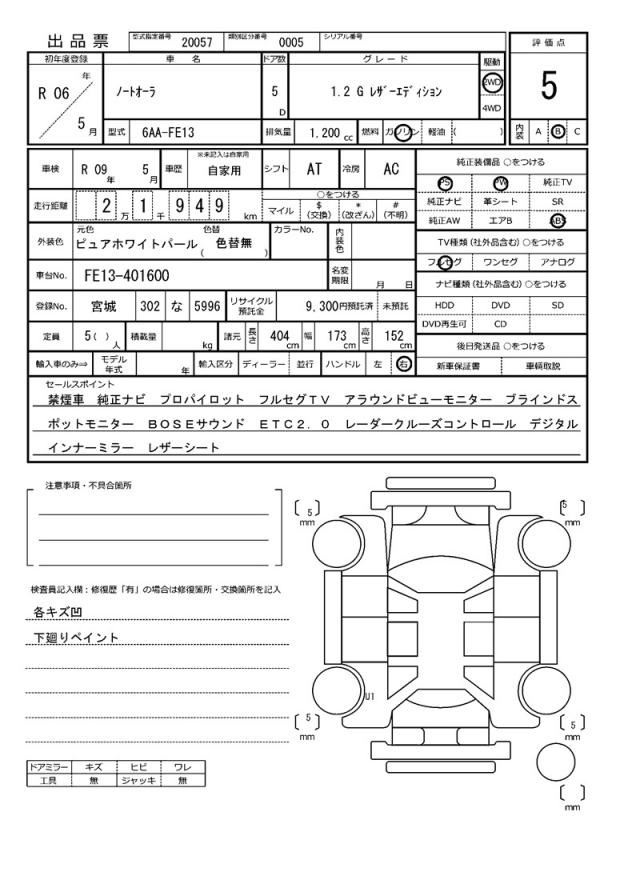 出品票 型式指定番号 20057 類別区分番号 0005 シリアル番号
評価点
5
内装 A B C
初年度登録 車名 ドア数 グレード 駆動
R 06 年 5 月
ノートオーラ 5 D 1.2 G レザーエディション 2WD
4WD
型式 6AA-FE13 排気量 1,200 cc 燃料 ガソリン 軽油 ( )
車検 R 09 年 5 月 車歴 ※未記入は自家用 自家用 シフト AT 冷房 AC
走行距離 2 万 1 千 9 4 9 km
○をつける
マイル $ (交換) * (改ざん) # (不明)
外装色 元色 ピュアホワイトパール 色替 ( 色替無 ) カラーNo. 内装色
車台No. FE13-401600 名変期限 月 日
登録No. 宮城 302 な 5996 リサイクル預託金 9,300円預託済 未預託
定員 5( ) 人 積載量 kg 諸元 長さ 404 cm 幅 173 cm 高さ 152 cm
輸入車のみ⇒ モデル年式 年 輸入区分 ディーラー 並行 ハンドル 左 右
純正装備品 ○をつける
PS PW 純正TV
純正ナビ 革シート SR
純正AW エアB ABS
TV種類(社外品含む) ○をつける
フルセグ ワンセグ アナログ
ナビ種類(社外品含む) ○をつける
HDD DVD SD
DVD再生可 CD
後日発送品 ○をつける
新車保証書 車輌取説
セールスポイント
禁煙車 純正ナビ プロパイロット フルセグTV アラウンドビューモニター ブラインドス
ポットモニター BOSEサウンド ETC2.0 レーダークルーズコントロール デジタル
インナーミラー レザーシート
注意事項・不具合箇所
検査員記入欄:修復歴「有」の場合は修復箇所・交換箇所を記入
各キズ凹
下廻りペイント
ドアミラー キズ ヒビ ワレ
工具 無 ジャッキ 無
5 mm
5 mm
U1
5 mm
5 mm
mm